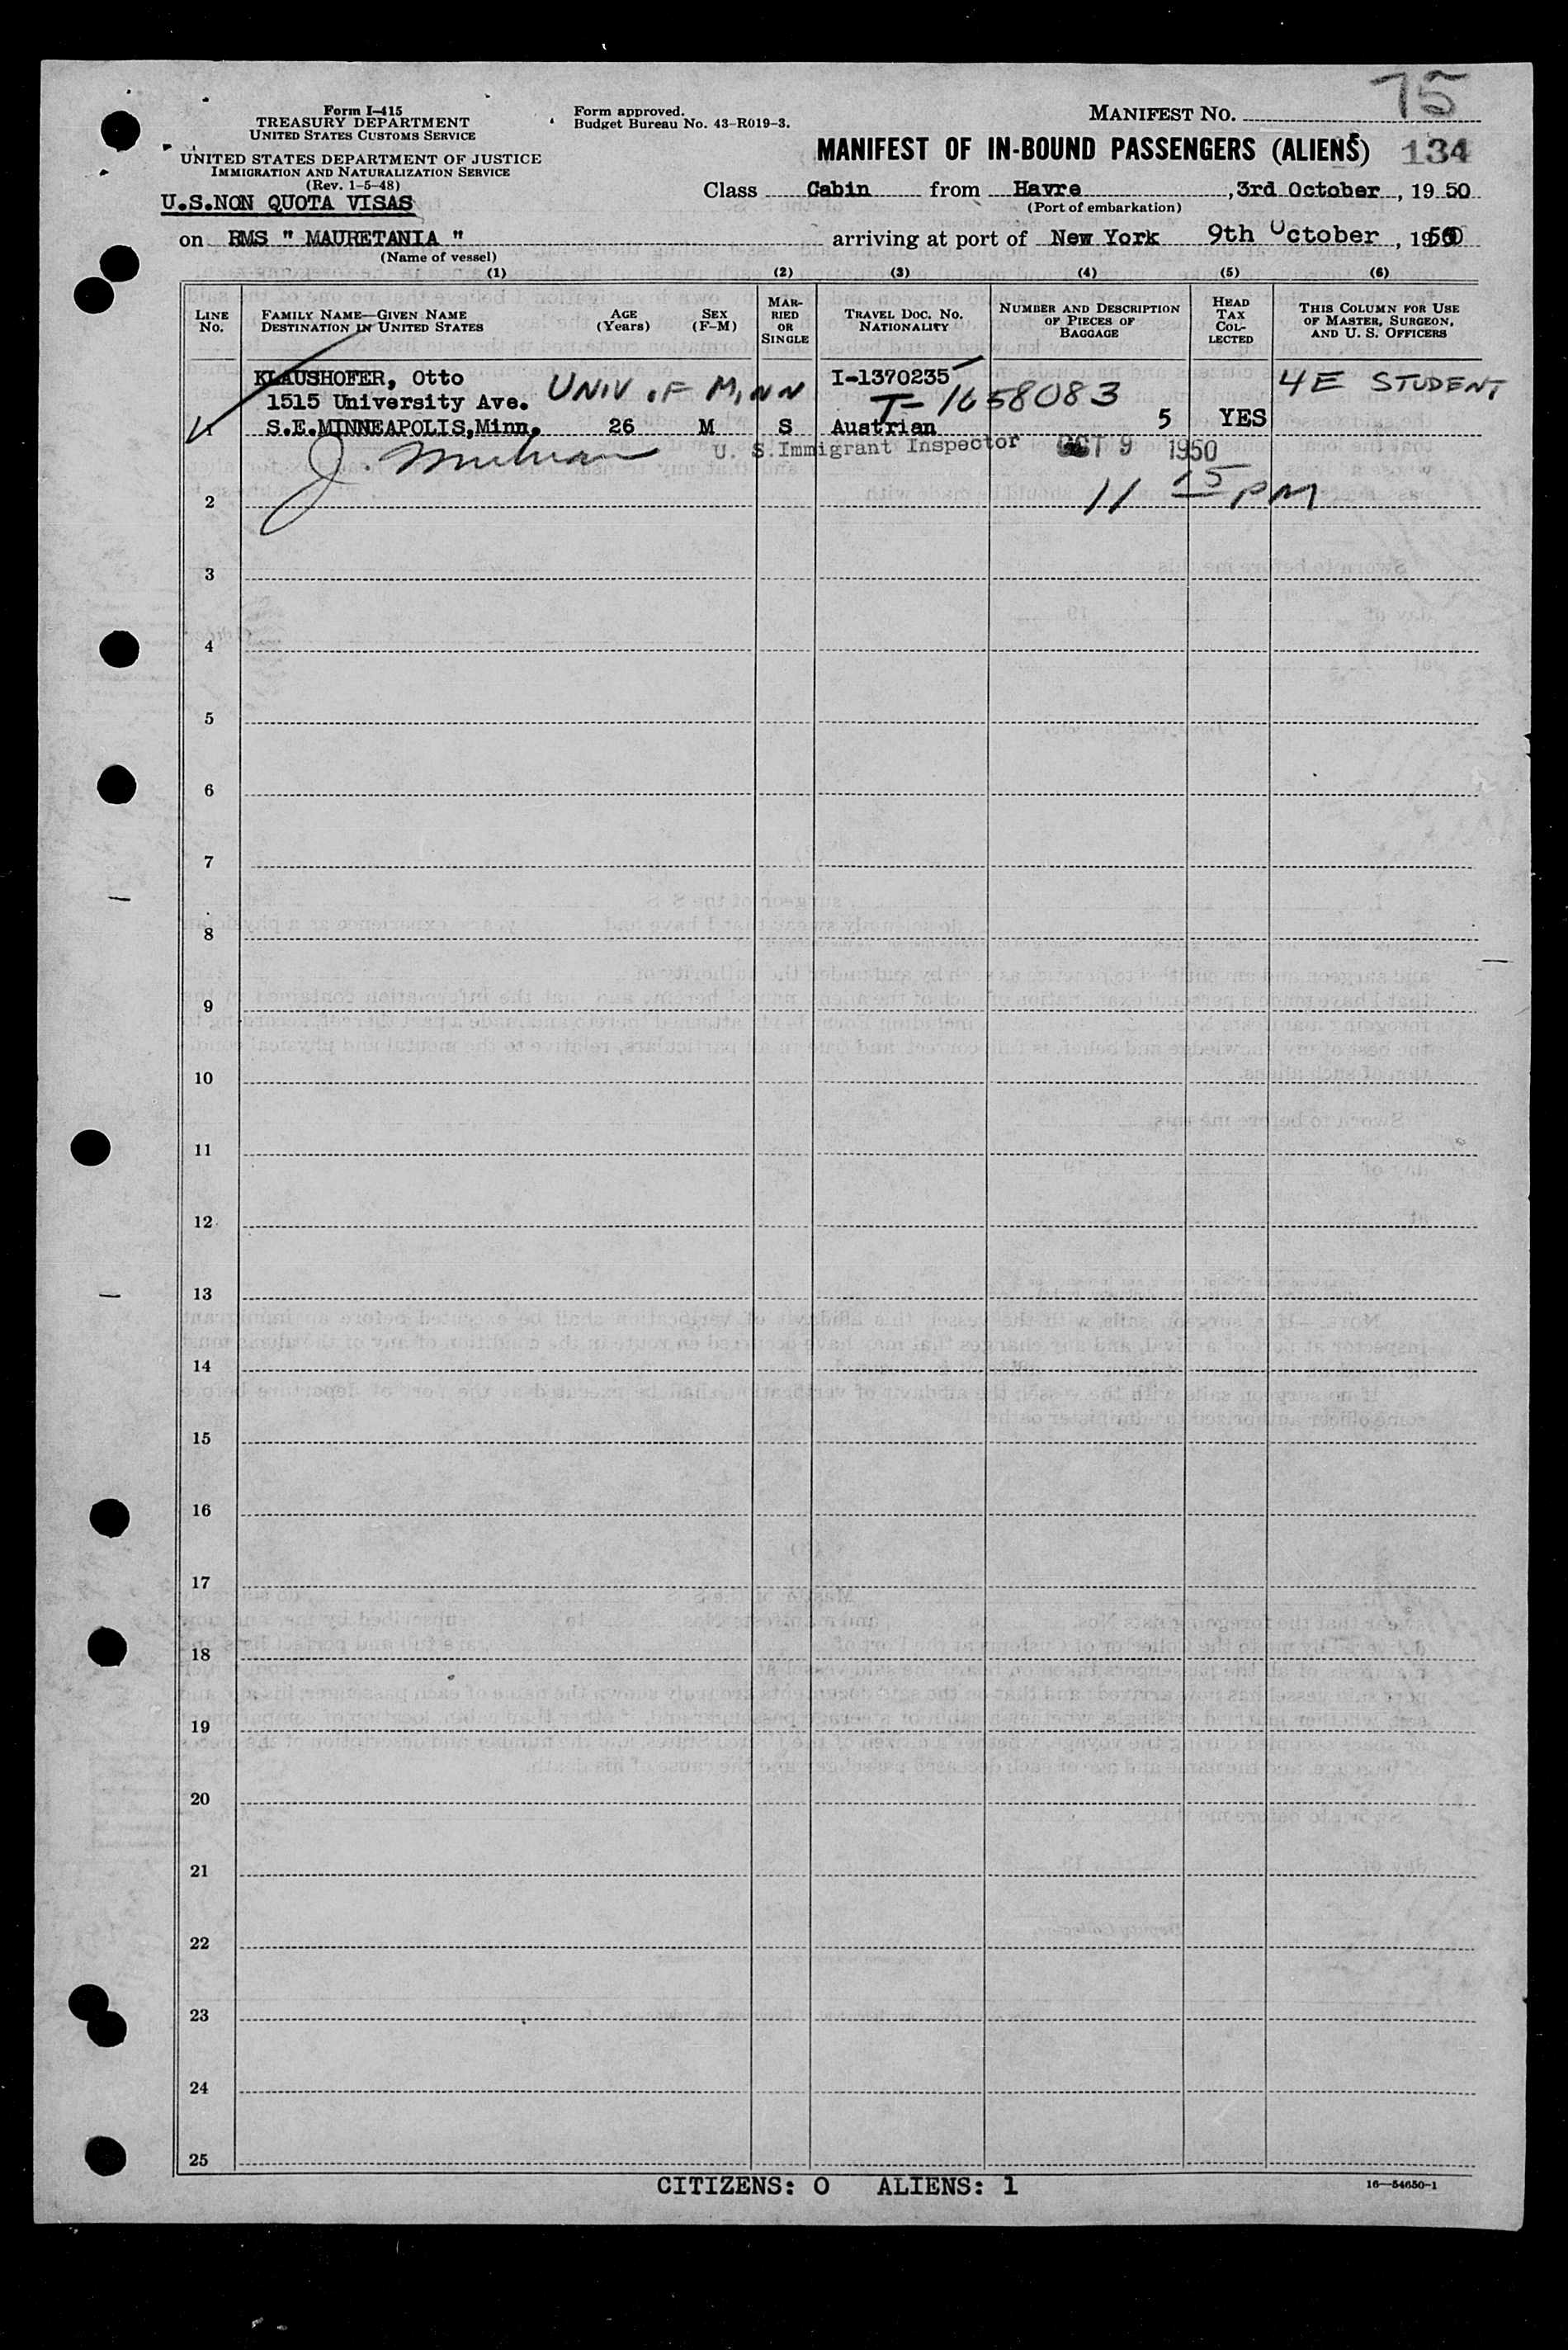 75
Form I-415
TREASURY DEPARTMENT
UNITED STATES CUSTOMS SERVICE
Form approved.
Budget Bureau No. 43-R019-3.
MANIFEST NO.
UNITED STATES DEPARTMENT OF JUSTICE
IMMIGRATION AND NATURALIZATION SERVICE
(Rev. 1-5-48)
MANIFEST OF IN-BOUND PASSENGERS (ALIENS) 134
U.S.NON QUOTA VISAS
Class Cabin from Havre, 3rd October, 19 50
(Port of embarkation)
on RMS " MAURETANIA " arriving at port of New York 9th October, 1950
(Name of vessel)
(1) (2) (3) (4) (5) (6)
LINE No. FAMILY NAME—GIVEN NAME DESTINATION IN UNITED STATES AGE (Years) SEX (F-M) MARRIED OR SINGLE TRAVEL DOC. NO. NATIONALITY NUMBER AND DESCRIPTION OF PIECES OF BAGGAGE HEAD TAX COLLECTED THIS COLUMN FOR USE OF MASTER, SURGEON, AND U. S. OFFICERS
KLAUSHOFER, Otto I-1370235 4E STUDENT
1515 University Ave. UNIV OF MINN T-1658083
1 S.E.MINNEAPOLIS,Minn. 26 M S Austrian 5 YES
U. S. Immigrant Inspector OCT 9 1950
2 11 15 PM
3
4
5
6
7
8
9
10
11
12
13
14
15
16
17
18
19
20
21
22
23
24
25
CITIZENS: 0 ALIENS: 1
16—54650-1